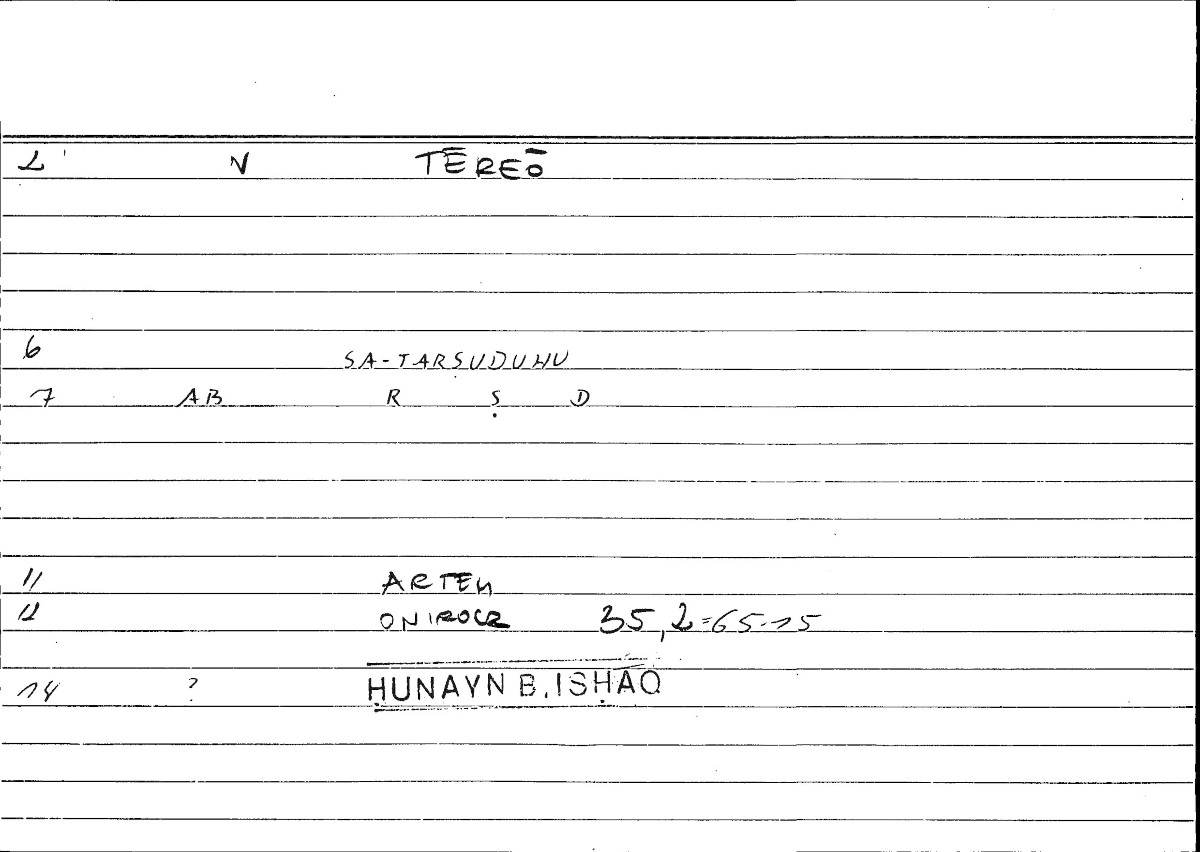 2 V TĒREŌ
6 SA-TARSUDUHU
7 AB R Ṣ D
11 ARTEM
12 ONIROCR 35,2=65.15
14 ? ḤUNAYN B. ISḤĀQ